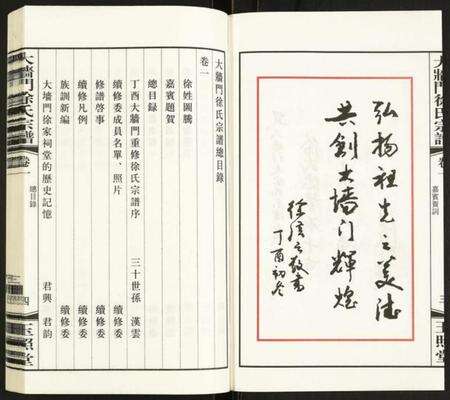 大牆門徐氏宗譜
卷一
嘉賓賀詞
三
玉照堂
弘揚祖先之美德
共創大墻门輝煌
徐
敬書
丁酉初冬
大牆門徐氏宗譜總目錄
卷一
徐姓圖騰
嘉賓題賀
總目錄
丁酉大牆門重修徐氏宗譜序 三十世孫 漢雲
續修委成員名單、照片 續修委
修譜啓事 續修委
續修凡例 續修委
族訓新編 續修委
大墻門徐家祠堂的歷史記憶 君興 君韵
大牆門徐氏宗譜
卷一
總目錄
玉照堂